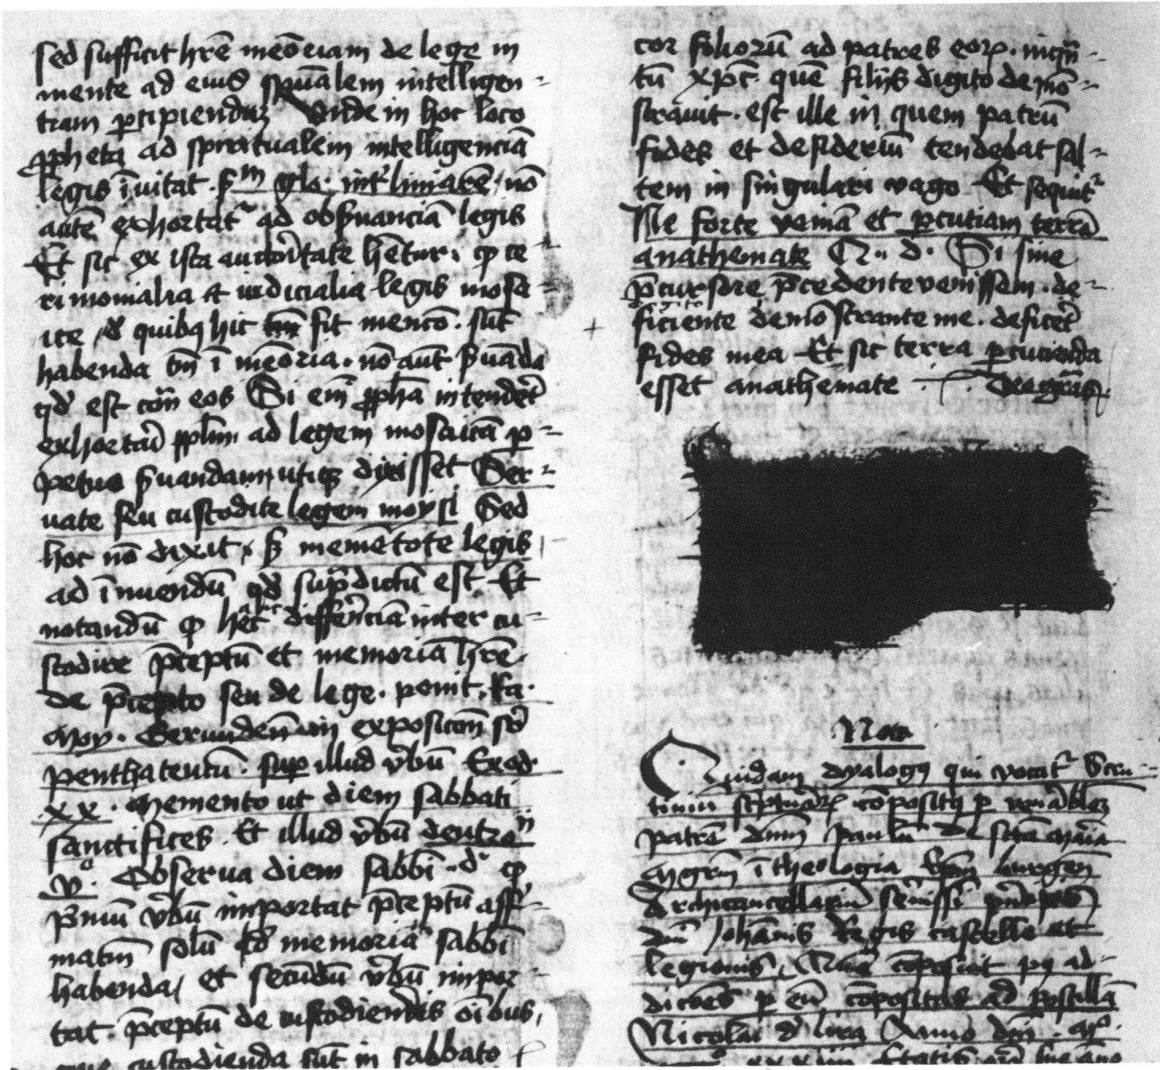 sed sufficit hr̄e meōeiam de lege in
mente ad eius spūalem intelligen-
tiam ꝑcipiendaȝ Unde in hoc loco
ꝓpheta ad spiritualem intelligenciā
legis īuitat. s̄m glo. int̄liniarē, nō
autē exhortat᷑ ad obs̄uanciā legis
Et sic ex ista auctor̄tate hētur, ꝙ ce-
rimonialia et iudicialia legis mosa-
ice, de quibꝰ hic fit mencō. sūt
habenda tm̄ ī meōria. nō aut̄ s̄uāda
qd̄ est cōn̄ eos Si em̄ ꝓph̄a intender̄t
exhortari pp̄lm ad legem mosaicā ꝑ-
petuo s̄uandam utiqȝ dixisset Ser-
uate seu custodite legem moysi Sed
hoc nō dixit, sȝ memētote legis
ad īnuendū qd̄ sup̄dictū est Et
notandū ꝙ hāc differ̄nciā inter cu-
stodire p̄ceptū et memoriā hr̄e
de p̄cepto seu de lege. ponit. Ra.
Moy. Gerunden̄ in exposicōn̄ sr̄
penthateucū. sup illud v̄bū Exod.
xx. Memento ut diem sabbati
sanctifices. Et illud v̄bū deutroⁿ
vᵒ. Obserua diem sabbī. d᷑ ꝙ
p̄mū v̄bū importat p̄ceptū aff̄r-
matm̄ solū de memoria sabbī
habenda, et secūdū v̄bū impor-
tat. p̄ceptū de custodiendis oībus,
que custodienda sūt in sabbato
cor filiorū ad patres eoꝝ. inqn̄-
tū xp̄c. quē filijs digito demō-
strauit. est ille in quem patrū
fides et desideriū tendebat sal-
tem in singulari vago Et sequit᷑
Ne forte veniā et ꝑcutiam terrā
anathemate Q. d. Si sine
p̄cursore p̄cedente venissem. de-
ficiente demōstrante me. deficer̄t
fides mea Et sic terra ꝑcucienda
esset anathemate Deo gr̄as.
Nota
Quidam dyalogꝰ qui vocat᷑ Scru-
tiniū sc̄ptuāꝝ cōpositꝰ ꝑ ven̄ablēȝ
patrē dn̄m paulū de sc̄ā maria
Mgr̄m ī theologia Ep̄m burgen̄
Archicancellariū sēnissī pn̄cipis
dn̄i Johānis Regis castelle et
legionis, Quē cōposuit pꝰ ad-
dicōēs ꝑ eū cōpositas ad postillā
Nicolai d᷑ lira Anno dn̄i. Mᵒ.